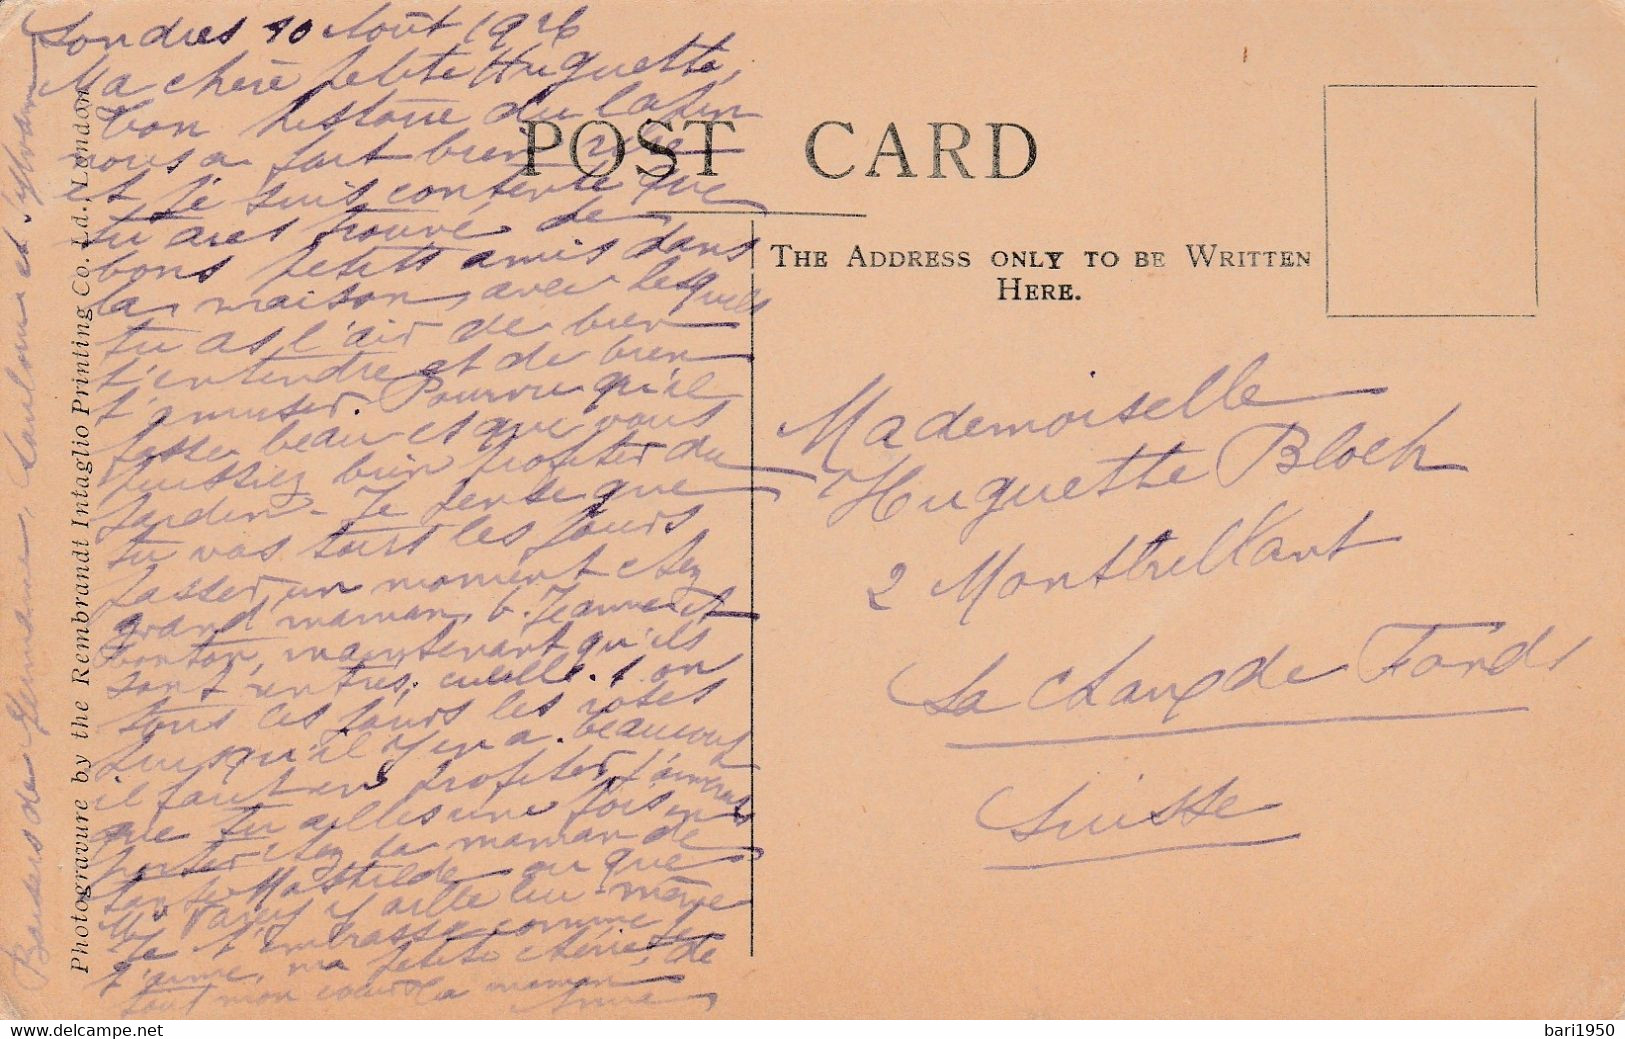 Londres 10 Août 1926
Ma chère petite Huguette,
Ton histoire du lapin
nous a fait bien rire
et je suis contente que
tu aies trouvé de
bons petits amis dans
la maison, avec lesquels
tu as l'air de bien
t'entendre et de bien
t'amuser. Pourvu qu'il
fasse beau et que vous
puissiez bien profiter du
jardin - Je pense que
tu vas tous les jours
passer un moment chez
grand maman, t. Jeanne et
tonton, maintenant qu'ils
sont rentrés. cueille-t-on
tous les jours les roses
puisqu'il y en a beaucoup
il faut en profiter j'aimerais
que tu ailles une fois en
porter chez la maman de
tante Mathilde ou que
y aille lui-même
Je t'embrasse comme je
t'aime, ma petite chérie, de
tout mon cœur ta maman
Baisers de Germaine, et
Photogravure by the Rembrandt Intaglio Printing Co. Ld., London
POST CARD
THE ADDRESS ONLY TO BE WRITTEN
HERE.
Mademoiselle
Huguette Bloch
2 Montbrillant
La Chaux de Fonds
Suisse
delcampe.net
bari1950